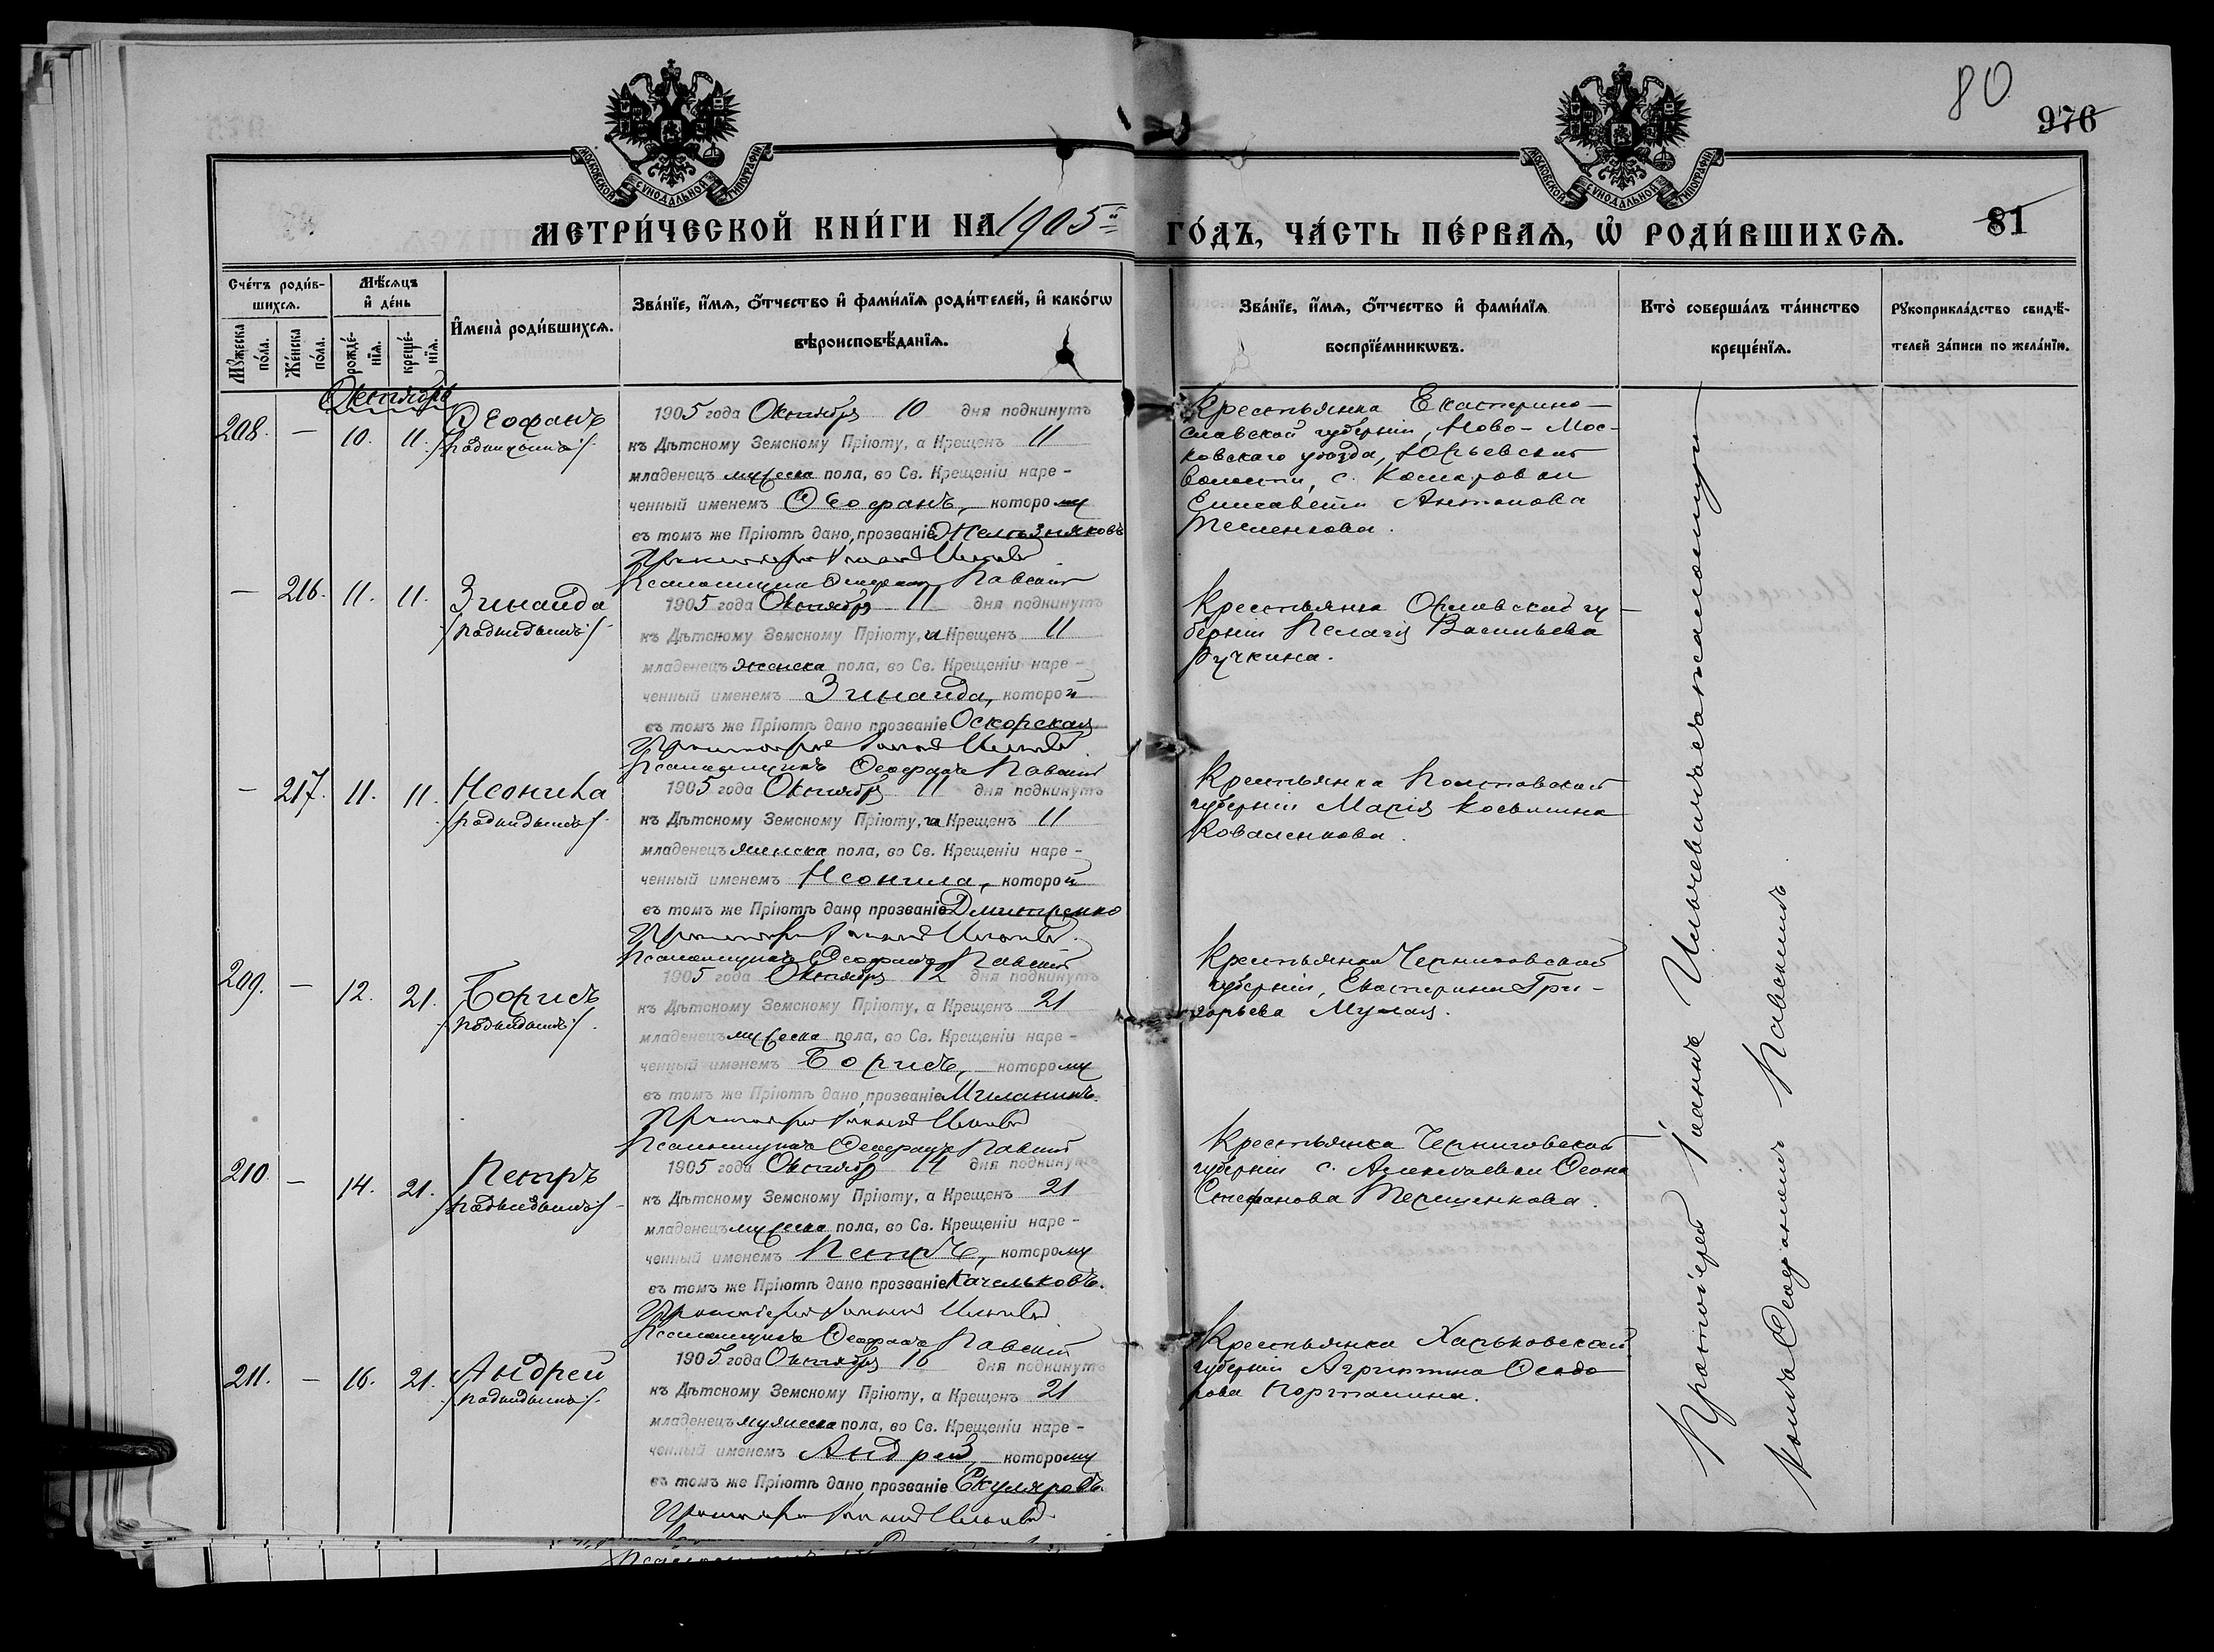 80
976
81
МОСКОВСКОЙ СѴНОДАЛЬНОЙ ТИПОГРАФІИ
МОСКОВСКОЙ СѴНОДАЛЬНОЙ ТИПОГРАФІИ
МЕТРИ́ЧЕСКОЙ КНИ́ГИ НА 1905й ГО́ДЪ, ЧА́СТЬ ПЕ́РВАѦ, Ѡ҆ РОДИ́ВШИХСѦ.
Сче́тъ роди́в-
шихсѧ.
Мꙋ́жеска по́ла.
Же́нска по́ла.
Мѣ́сѧцъ
и҆ де́нь
рожде́-нїѧ.
креще́-нїѧ.
И҆мена̀ роди́вшихсѧ.
Зва́нїе, и҆́мѧ, ѻ҆́тчество и҆ фами́лїѧ роди́телей, и҆ како́гѡ
вѣроисповѣ́данїѧ.
Зва́нїе, и҆́мѧ, ѻ҆́тчество и҆ фами́лїѧ
воспрїе́мникѡвъ.
Кто̀ соверша́лъ та́инство
креще́нїѧ.
Рꙋкоприкла́дство свидѣ́-
телей за́писи по жела́нїю.
Октябрь
208. — 10. 11. Ѳеофанъ
/подкидышъ/.
1905 года Октября 10 дня подкинутъ
къ Дѣтскому Земскому Пріюту, а Крещенъ 11
младенецъ мужеска пола, во Св. Крещеніи наре-
ченный именемъ Ѳеофанъ, которому
въ томъ же Пріютѣ дано прозваніе Желѣзняковъ
Псаломщикъ Ѳеофанъ Павскій
Крестьянка Екатерино-
славской губерніи, Ново-Мос-
ковскаго уѣзда, Юрьевской
волости, с.
Елисавета Антонова
— 216. 11. 11. Зинаида
/подкидышъ/.
1905 года Октября 11 дня подкинутъ
къ Дѣтскому Земскому Пріюту, и Крещенъ 11
младенецъ женска пола, во Св. Крещеніи наре-
ченный именемъ Зинаида, которой
въ томъ же Пріютѣ дано прозваніе Оскорская
Псаломщикъ Ѳеофанъ Павскій
Крестьянка Орловской гу-
берніи Пелагія Васильева
Ручкина.
— 217. 11. 11. Неонила
/подкидышъ/.
1905 года Октября 11 дня подкинутъ
къ Дѣтскому Земскому Пріюту, и Крещенъ 11
младенецъ женска пола, во Св. Крещеніи наре-
ченный именемъ Неонила, которой
въ томъ же Пріютѣ дано прозваніе Дмитренко
Псаломщикъ Ѳеофанъ Павскій
Крестьянка Полтавской
губерніи Марія Косьмина
Коваленкова.
209. — 12. 21. Борисъ
/подкидышъ/.
1905 года Октября 12 дня подкинутъ
къ Дѣтскому Земскому Пріюту, а Крещен 21
младенецъ мужеска пола, во Св. Крещеніи наре-
ченный именемъ Борисъ, которому
въ томъ же Пріютѣ дано прозваніе
Псаломщикъ Ѳеофанъ Павскій
Крестьянка Черниговской
губерніи, Екатерина Гри-
горьева
210. — 14. 21. Петръ
/подкидышъ/.
1905 года Октября 14 дня подкинутъ
къ Дѣтскому Земскому Пріюту, а Крещенъ 21
младенецъ мужеска пола, во Св. Крещеніи наре-
ченный именемъ Петръ, которому
въ томъ же Пріютѣ дано прозваніе Качельковъ.
Псаломщикъ Ѳеофанъ Павскій
Крестьянка Черниговской
губерніи с.
Стефанова Терещенкова.
211. — 16. 21. Андрей
/подкидышъ/.
1905 года Октября 16 дня подкинутъ
къ Дѣтскому Земскому Пріюту, а Крещенъ 21
младенецъ мужеска пола, во Св. Крещеніи наре-
ченный именемъ Андрей, которому
въ томъ же Пріютѣ дано прозваніе Скуляровъ.
Крестьянка Харьковской
губерніи Агриппина Ѳеодо
рова
Протоіерей Іоаннъ съ псаломщи-
комъ Ѳеофаномъ Павскимъ